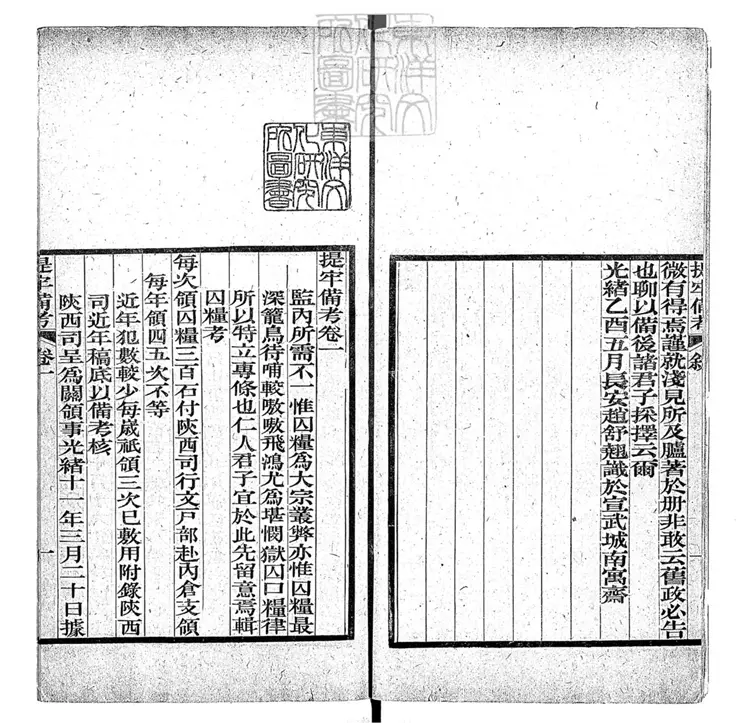 提牢備考 敘
微有得焉謹就淺見所及臚著於册非敢云舊政必告
也聊以備後諸君子採擇云爾
光緒乙酉五月長安趙舒翹識於宣武城南寓齋
東洋文
化研究
所圖書
提牢備考卷一
監內所需不一惟囚糧爲大宗叢弊亦惟囚糧最
深籠鳥待哺較嗷嗷飛鴻尤爲堪憫獄囚口糧律
所以特立專條也仁人君子宜於此先留意焉輯
囚糧考
每次領囚糧三百石付陝西司行文戸部赴內倉支領
每年領四五次不等
近年犯數較少每歲祇領三次已敷用附錄陝西
司近年稿底以備考核
陝西司呈爲關領事光緒十一年三月二十日據
提牢備考 卷一 一
東洋文
化研究
所圖書